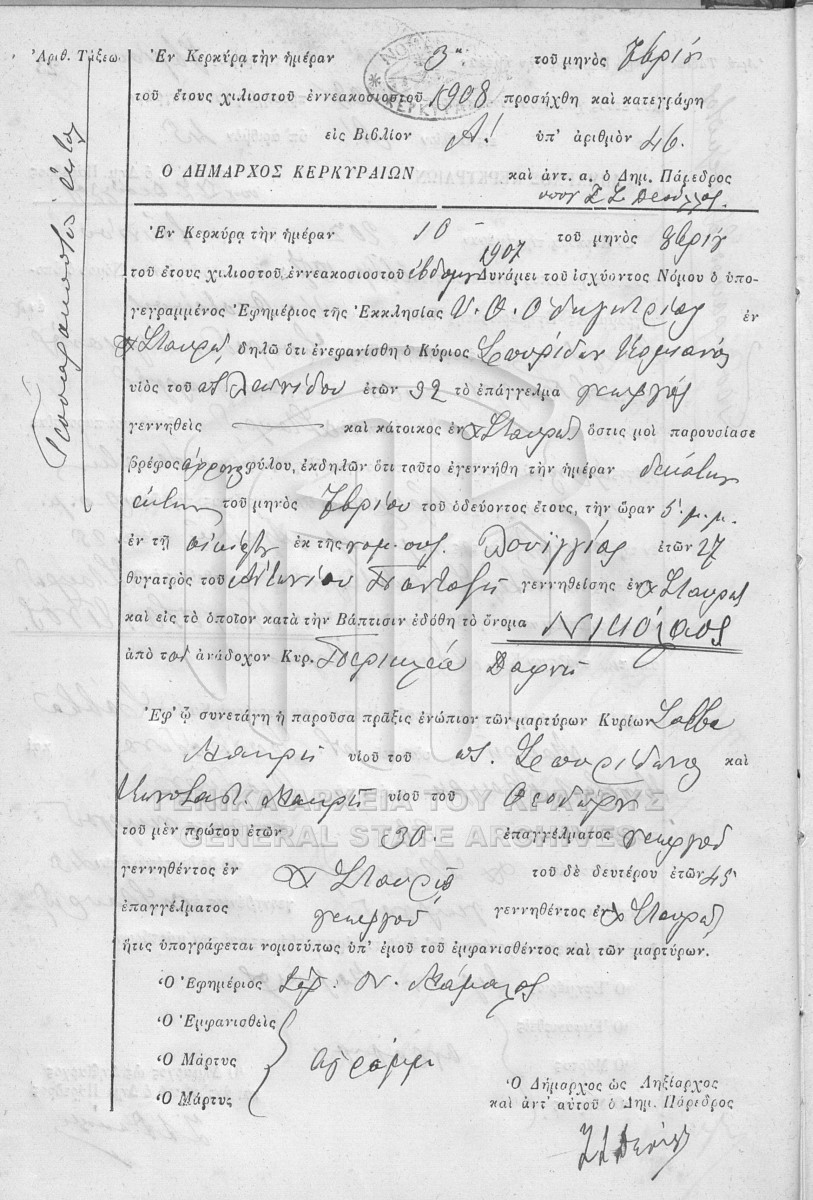 Ἀριθ. Τάξεω
Τεσσαρακοστὸν ἕκτον
Ἐν Κερκύρᾳ τὴν ἡμέραν 3 τοῦ μηνὸς
τοῦ ἔτους χιλιοστοῦ ἐννεακοσιοστοῦ 1908 προσήχθη καὶ κατεγράφη
εἰς Βιβλίον Α! ὑπ' ἀριθμὸν 46.
Ο ΔΗΜΑΡΧΟΣ ΚΕΡΚΥΡΑΙΩΝ καὶ ἀντ. α. ὁ Δημ. Πάρεδρος
Ἐν Κερκύρᾳ τὴν ἡμέραν 10 τοῦ μηνὸς
1907
τοῦ ἔτους χιλιοστοῦ ἐννεακοσιοστοῦ Δυνάμει τοῦ ἰσχύοντος Νόμου ὁ ὑπο-
γεγραμμένος Ἐφημέριος τῆς Ἐκκλησίας Υ. Θ. Οδηγητρίας ἐν
Σταυρῷ δηλῶ ὅτι ἐνεφανίσθη ὁ Κύριος Σπυρίδων
υἱὸς τοῦ ἐτῶν 32 τὸ ἐπάγγελμα γεωργὸς
γεννηθεὶς καὶ κάτοικος ἐν Σταυρῷ ὅστις μοὶ παρουσίασε
βρέφος ἄρρενος φύλου, ἐκδηλῶν ὅτι τοῦτο ἐγεννήθη τὴν ἡμέραν δεκάτην
ἕκτην τοῦ μηνὸς τοῦ ὁδεύοντος ἔτους, τὴν ὥραν 5 μ.μ.
ἐν τῇ οἰκίᾳ ἐκ τῆς νομ. συζ. Λουΐζας ἐτῶν 27
θυγατρὸς τοῦ Ἀντωνίου Πανταζῆ γεννηθείσης ἐν Σταυρῷ
καὶ εἰς τὸ ὁποῖον κατὰ τὴν Βάπτισιν ἐδόθη τὸ ὄνομα Νικόλαος
ἀπὸ τὸν ἀνάδοχον Κυρ. Περικλέα Δαφνῆ
Ἐφ' ᾧ συνετάγη ἡ παροῦσα πρᾶξις ἐνώπιον τῶν μαρτύρων Κυρίων Σάββα
Μακρῆ υἱοῦ τοῦ Σπυρίδωνος καὶ
Κωνσταντ. Μακρῆ υἱοῦ τοῦ Θεοδώρου
ΓΕΝΙΚΑ ΑΡΧΕΙΑ ΤΟΥ ΚΡΑΤΟΥΣ
τοῦ μὲν πρώτου ἐτῶν 30 ἐπαγγέλματος γεωργοῦ
GENERAL STATE ARCHIVES
γεννηθέντος ἐν Σταυρῷ τοῦ δὲ δευτέρου ἐτῶν 45
ἐπαγγέλματος γεωργοῦ γεννηθέντος ἐν Σταυρῷ
ἥτις ὑπογράφεται νομοτύπως ὑπ' ἐμοῦ τοῦ ἐμφανισθέντος καὶ τῶν μαρτύρων.
Ὁ Ἐφημέριος Ν. Μάμαλος
Ὁ Ἐμφανισθεὶς
Ὁ Μάρτυς ἀγράμμ
Ὁ Μάρτυς
Ὁ Δήμαρχος ὡς Ληξίαρχος
καὶ ἀντ' αὐτοῦ ὁ Δημ. Πάρεδρος